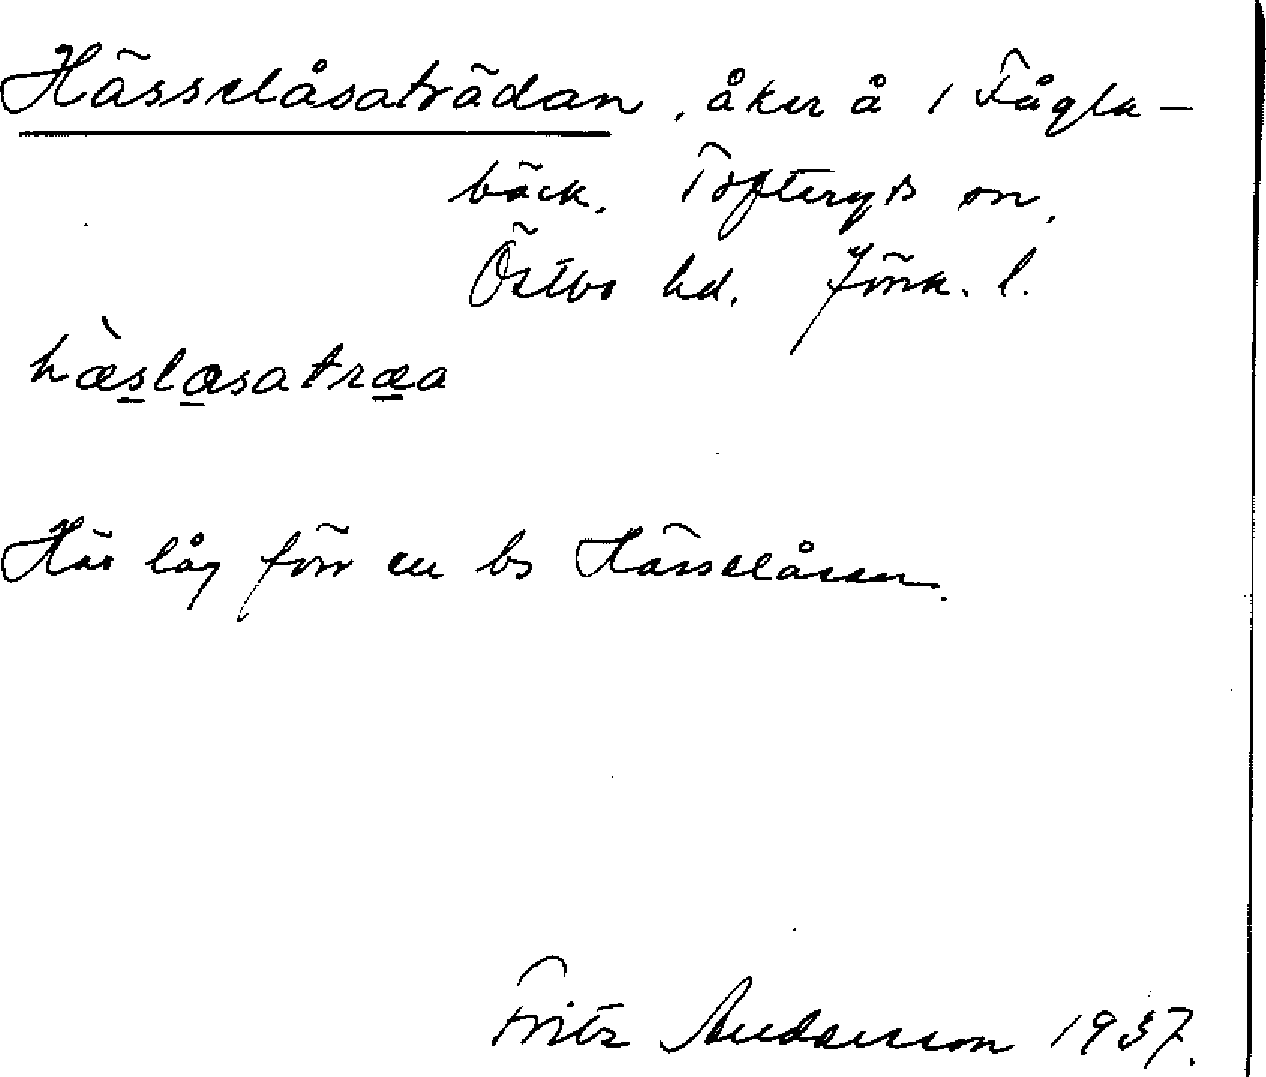 Hässelåsaträdan, åker å 1 Fågla-
bäck. Tofteryds sn.
Östbo hd. Jönk. l.
hæ̀slasatræa
Här låg förr en bs Hässelåsen.
Fritz Andersson 1937.